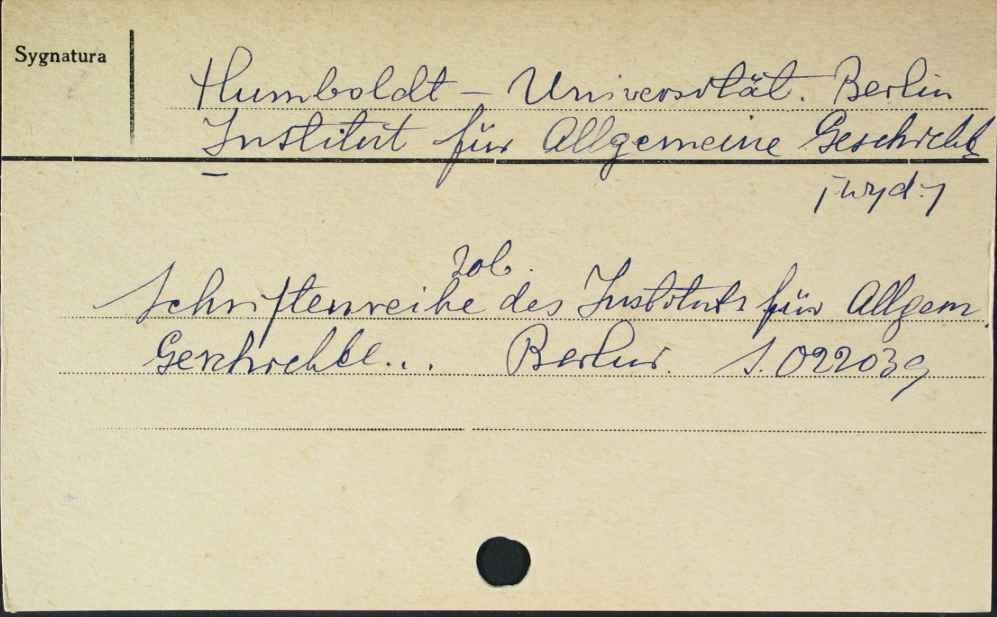 Sygnatura
Humboldt - Universität. Berlin
Institut für Allgemeine Geschicht
/wyd./
zob.
Schriftenreihe des Instituts für Allgem.
Geschichte... Berlin. S. 022039